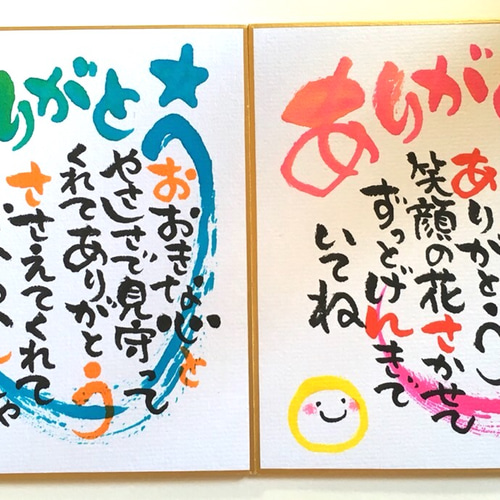 りがとう
おおきな心と
やさしさで見守って
くれてありがとう
ささえてくれて
ありが
ありがとう
笑顔の花さかせて
ずっとげんきで
いてね